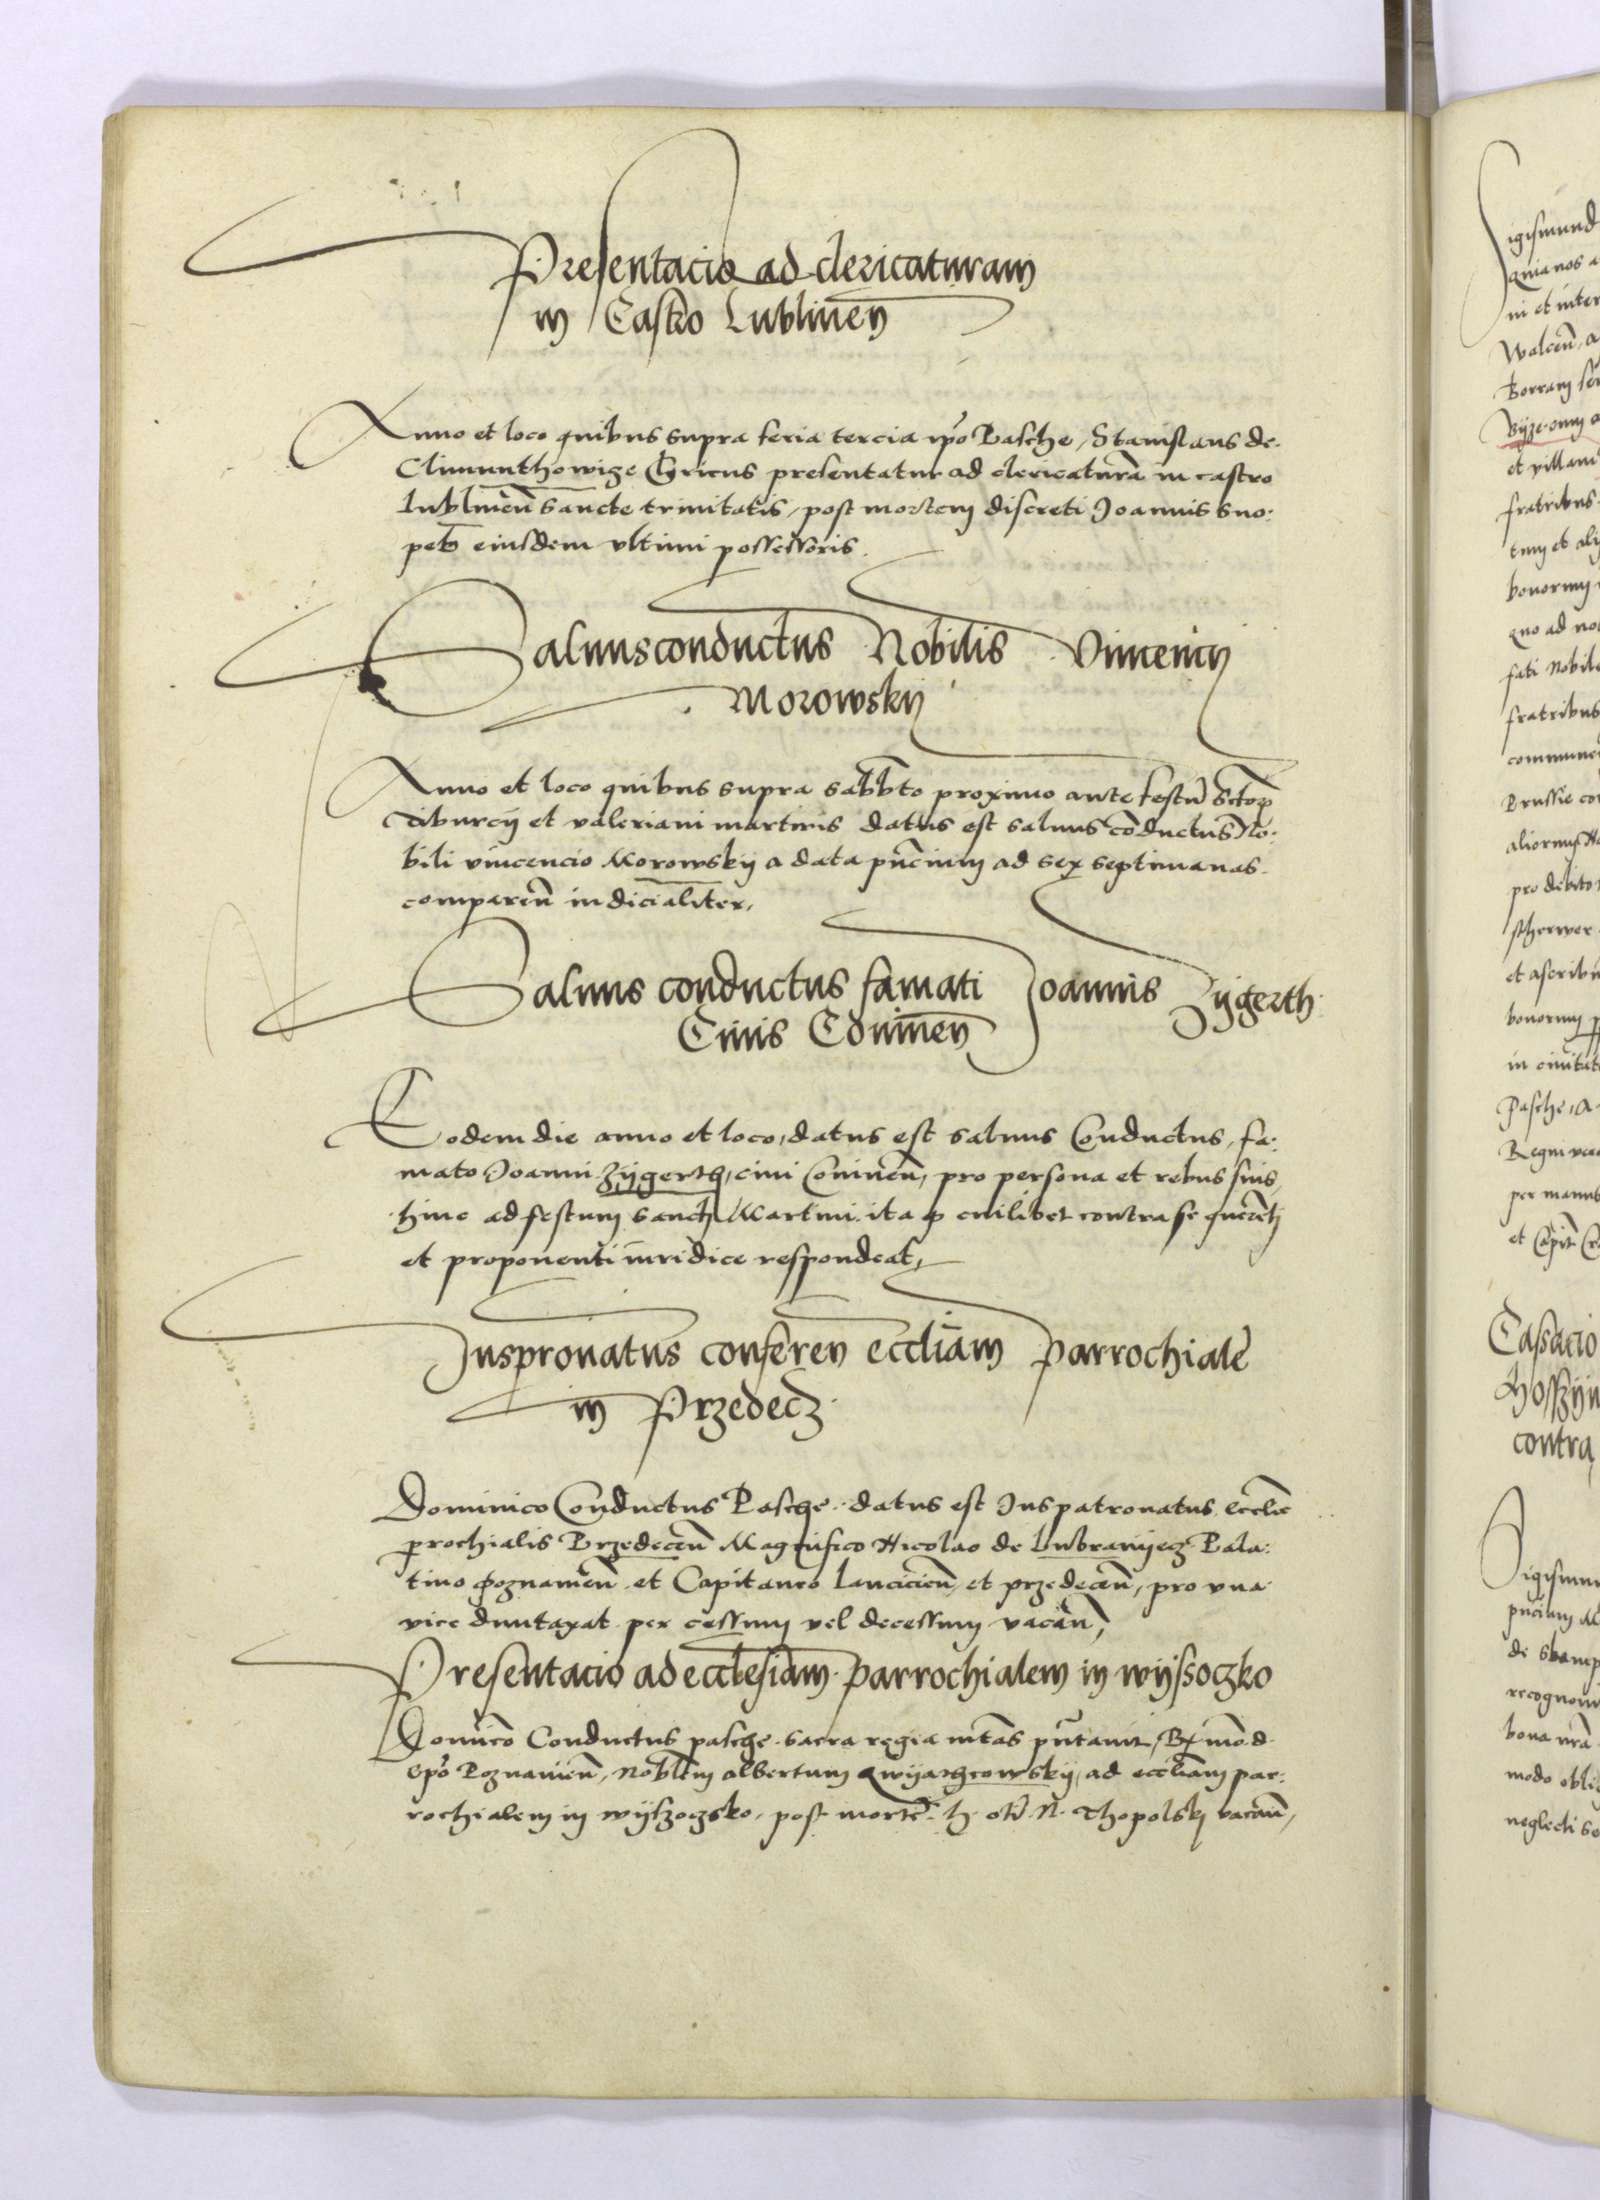 Presentacio ad clericaturam
in Castro Lublinen̄
Anno et loco quibus supra feria tercia ip̄o Pasche, Stanislaus de
Climunthowize Clericus presentatur ad clericaturā in castro
Lublinen̄ Sancte trinitatis, post mortem discreti Joannis Sno:
pek eiusdem vltimi possessoris.
Saluusconductus Nobilis Vincencij
Morowskij
Anno et loco quibus supra sabbto proximo ante festū Sctorꝝ
Tiburcij et valeriani martiris datus est saluus cōductus No:
bili vincencio Morowskij a data pn̄cium ad sex septimanas
comparen̄ iudicialiter,
Saluus conductus famati Joannis Zijgerth
Ciuis Coninen̄
Eodem die anno et loco, datus est saluus Conductus, fa:
mato Joanni Zijgerth, ciui Coninen̄, pro persona et rebus suis,
hinc ad festum sancti Martini ita ꝙ cuilibet contra se querēti
et proponenti iuridice respondeat,
Juspronatus conferen eccliam parrochialē
in Przedecz
Dominico Conductus Pasche datus est Juspatronatus ecclie
prochialis Przedecen̄ Magnifico Nicolao de Lubranijecz Pala:
tino poznanien̄ et Capitaneo Lancicien̄ et przedecen̄, pro vna
vice duntaxat per cessum vel decessum vacan̄,
Presentacio ad ecclesiam parrochialem in wijsoczko
Domico Conductus pasche sacra regia mtas pn̄tauit, Rx̄mo d.
Ep̄o Poznanien̄, noblem albertum, ad eccliam par:
rochialem in wijsoczsko, post mortē h. olī N. Thopolskj vacan̄,
Sigismund
quia nos a
ni et inter
Walcen̄, a
et villam
fratribus
tum et ali
bonorum
quo ad no
fati nobile
fratribus
communem
Prussie co
aliorum
pro debito
et ascribu
bonorum p
in ciuitate
Pasche, A
Regni
per manus
et Capit
Cassacio
contra
Sigismun
pn̄cium
recognoui
bona
modo oblig
neglecti se